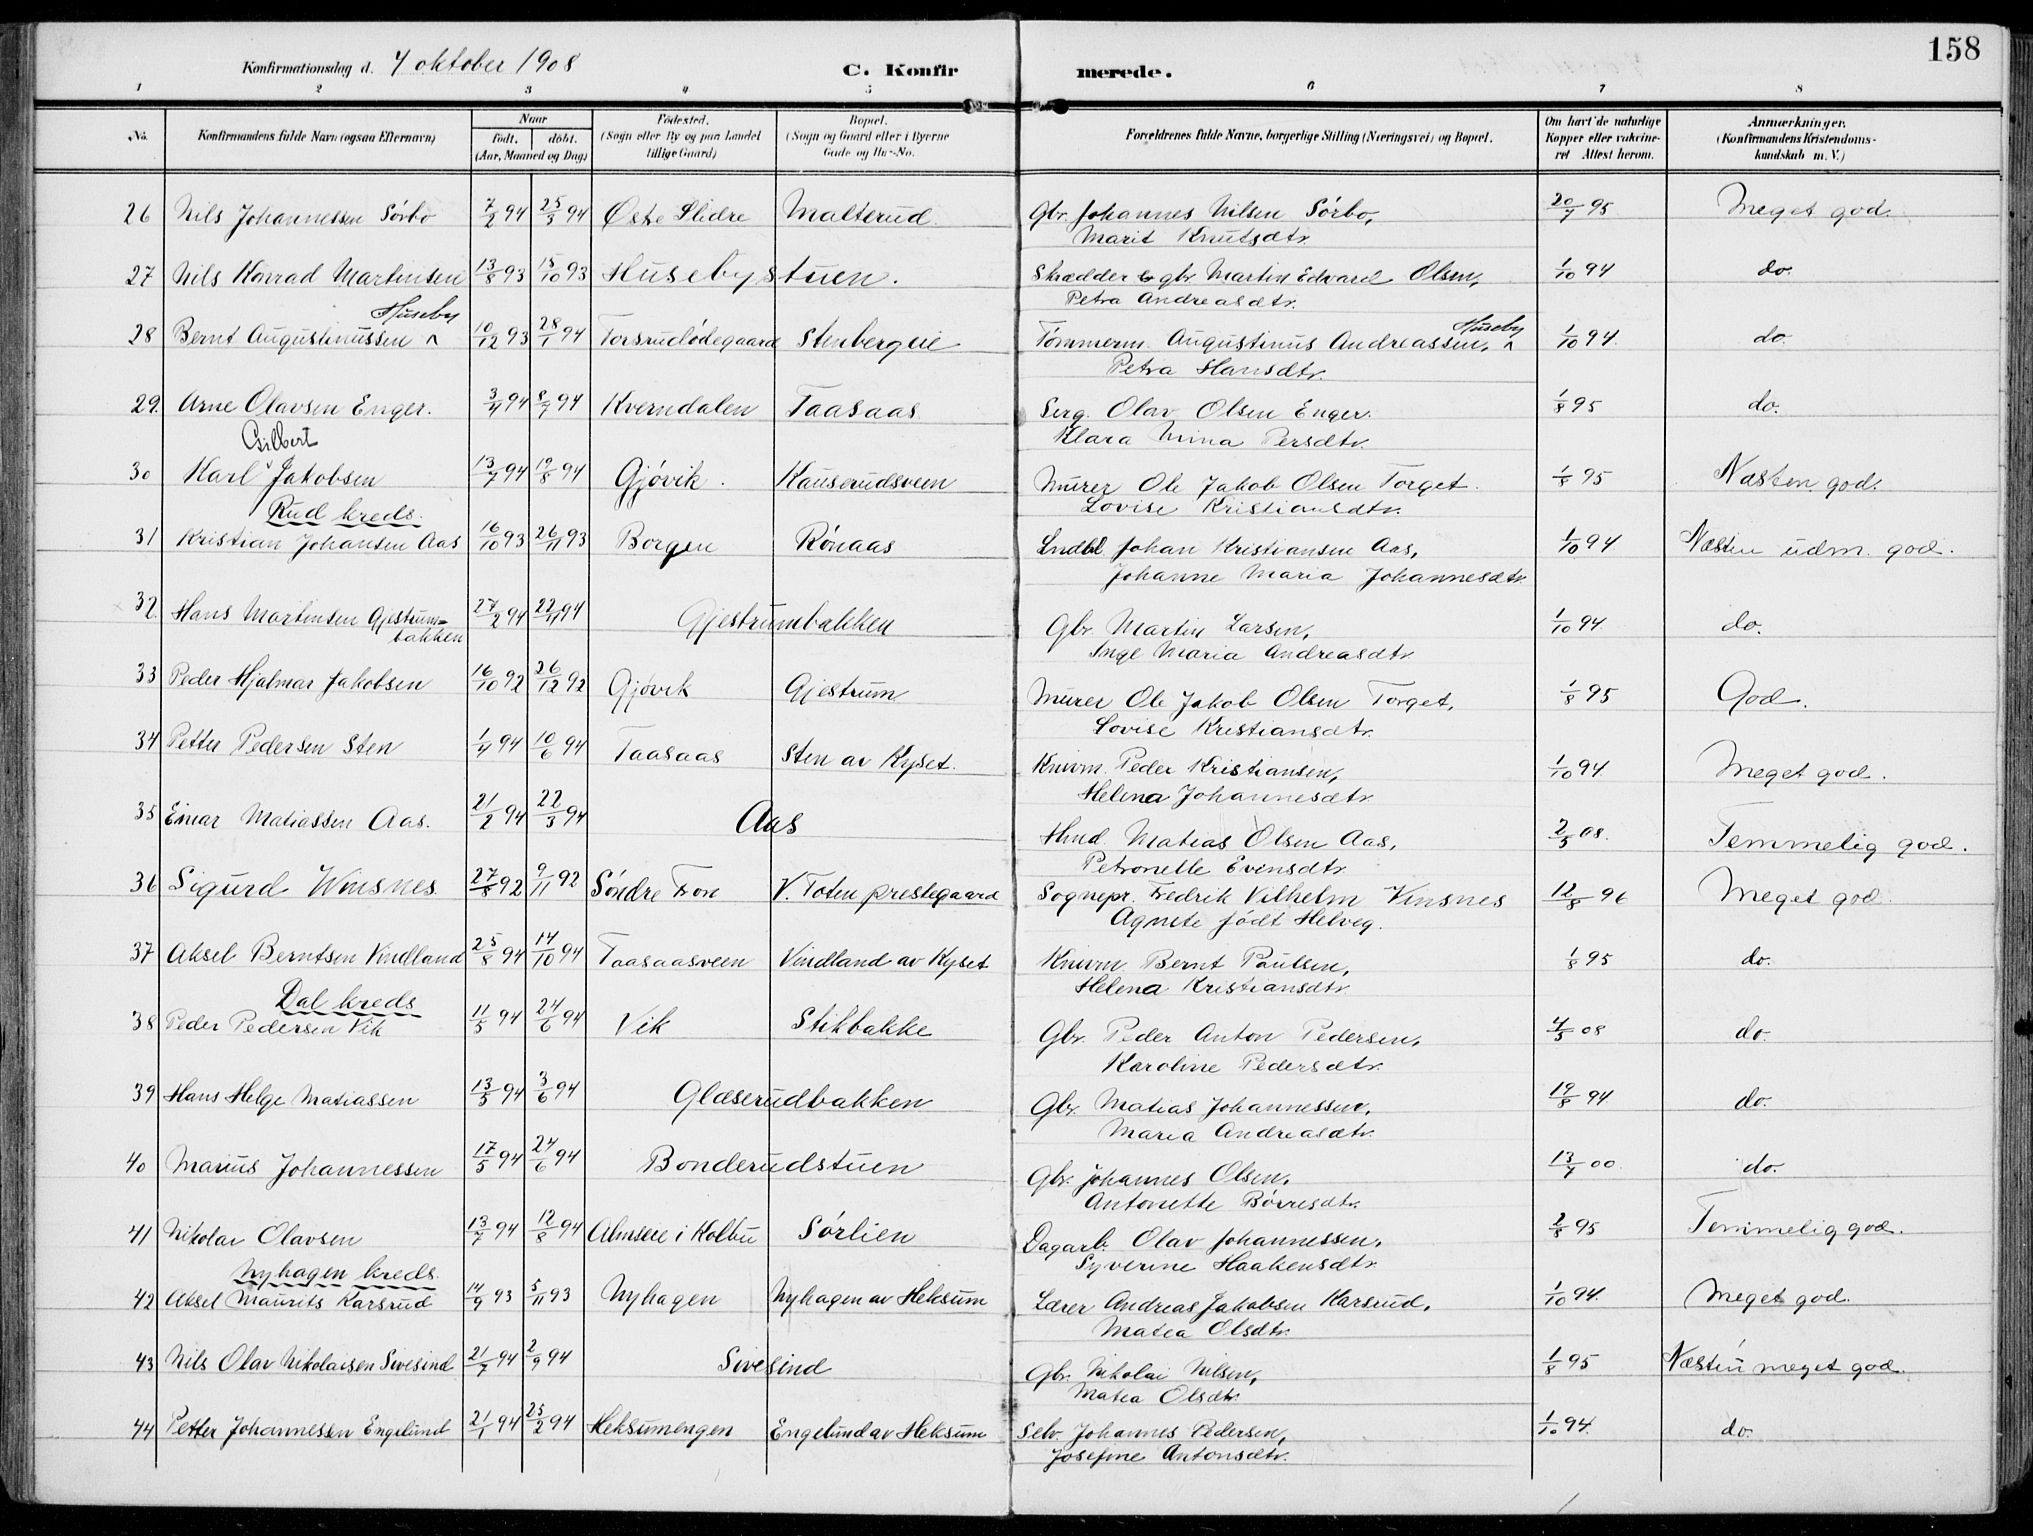 158
Konfirmationsdag d. 4 oktober 1908 C. Konfirmerede.
1 2 3 4 5 6 7 8
No. Konfirmandens fulde Navn (ogsaa Efternavn) Naar født. døbt. (Aar, Maaned og Dag) Fødested. (Sogn eller By og paa Landet tillige Gaard) Bopæl. (Sogn og Gaard eller i Byerne Gade og Hus-No. Forældrenes fulde Navne, borgerlige Stilling (Næringsvei) og Bopæl. Om havt de naturlige Kopper eller vakcineret Attest herom. Anmærkninger. (Konfirmandens Kristendomskundskab m. V.)
26 Nils Johannessen Sørbo 7/2 94 25/3 94 Østre Slidre Malterud. Gbr. Johannes Nilsen Sørbo, 20/7 95 Meget god.
Marit Knutsdtr.
27 Nils Konrad Martinsen 13/8 93 15/10 93 Husebystuen. Skrædder & gbr. Martin Edvard Olsen, 1/10 94 do.
Petra Andreasdtr.
Huseby Huseby
28 Bernt Augustinussen ^ 10/12 93 28/1 94 Torsrudødegaard Stenbergeie Tømmerm. Augustinus Andreassen, ^ 1/10 94 do.
Petra Hansdtr.
29. Arne Olavsen Enger. 3/4 94 8/7 94 Kverndalen Taasaas Serg. Olav Olsen Enger. 1/8 95 do.
Klara Mina Persdtr.
Gilbert
30 Karl v Jakobsen 13/7 94 19/8 94 Gjøvik. Kauserudsveen Murer Ole Jakob Olsen Torget. 1/8 95 Næsten god.
Lovise Kristiansdtr.
Rud kreds.
31 Kristian Johansen Aas 16/10 93 26/11 93 Borgen Rønaas Johan Kristiansen Aas, 1/10 94 Næsten udm. god.
Johanne Maria Johannesdtr.
32. Hans Martinsen Gjestrum-bakken 27/2 94 22/4 94 Gjestrumbakken Gbr. Martin Larsen, 1/10 94 do.
Inge Maria Andreasdtr.
33 Peder Hjalmar Jakobsen 16/10 92 26/12 92 Gjøvik Gjestrum Murer Ole Jakob Olsen Torget, 1/8 95 God.
Lovise Kristiansdtr.
34 Petter Pedersen Sten 1/4 94 10/6 94 Taasaas Sten av Kyset. Knivm. Peder Kristiansen, 1/10 94 Meget god.
Helena Johannesdtr.
35 Einar Matiassen Aas. 21/2 94 22/3 94 Aas Hmd. Matias Olsen Aas, 2/5 08. Temmelig god.
Petronelle Evensdtr.
36 Sigurd Winsnes 27/8 92 9/11 92 Søndre Fron V. Toten prestegaard Sognepr. Fredrik Vilhelm Vinsnes 12/8 96 Meget god.
Agnete født Helveg.
37 Aksel Berntsen Vindland 25/8 94 14/10 94 Taasaasveen Vindland av Kyset Knivm. Bernt Paulsen, 1/8 95 do.
Helena Kristiansdtr.
Dal kreds
38 Peder Pedersen Vik 11/5 94 24/6 94 Vik Stikbakke Gbr. Peder Anton Pedersen, 4/5 08 do.
Karoline Pedersdtr.
39 Hans Helge Matiassen 13/5 94 3/6 94 Glæserudbakken Gbr. Matias Johannessen, 19/8 94 do.
Maria Andreasdtr.
40 Marius Johannessen 17/5 94 24/6 94 Bonderudstuen Gbr. Johannes Olsen, 13/7 00 do.
Antonette Børresdtr.
41 Nikolai Olavsen 13/7 94 12/8 94 Almseie i Kolbu Sørlien Dagarb. Olav Johannessen, 2/8 95 Temmelig god.
Syverine Haakensdtr.
Nyhagen kreds.
42 Aksel Maurits Karsrud 14/9 93 5/11 93 Nyhagen Nyhagen av Heksum Lærer Andreas Jakobsen Karsrud, 1/10 94. Meget god.
Matea Olsdtr.
43 Nils Olav Nikolaisen Sivesind 21/7 94 2/9 94 Sivesind Gbr. Nikolai Nilsen, 1/8 95 Næsten meget god.
Matea Olsdtr.
44 Petter Johannessen Engelund 21/1 94 25/2 94 Heksumengen Engelund av Heksum Selv. Johannes Pedersen, 1/10 94. do.
Josefine Antonsdtr.